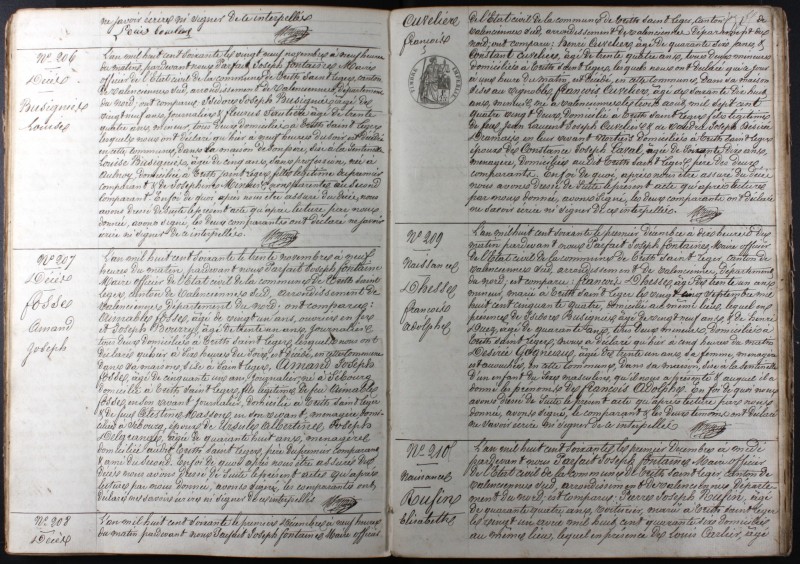 ne savoir écrire ni signer de ce interpellés
N° 206
Décès
Busignies
Louise
L'an mil huit cent soixante le vingt neuf novembre à neuf heures
du matin, pardevant nous Parfait Joseph Fontaine, Maire
officier de l'Etat civil de la commune de Trith Saint Léger, canton
de Valenciennes sud, arrondissement de Valenciennes, département
du Nord, ont comparu Isidore Joseph Busignies, âgé de
vingt neuf ans, journalier &
quatre ans, tous deux domiciliés à Trith Saint Léger
lesquels nous ont déclaré qu'hier à
en cette commune, dans sa maison
Louise Busignies, âgée de cinq ans, sans profession, née à
Aubry, domiciliée à Trith Saint Léger, fille légitime du premier
comparant & de Joséphine
comparant. Enfin de quoi après nous être assuré du décès, nous
avons dressé de suite le présent acte qu'après lecture par nous
donnée, avons signé, les deux comparants ont déclaré ne savoir
écrire ni signer de ce interpellés.
N° 207
Décès
Fosse
Amand
Joseph
L'an mil huit cent soixante le trente novembre à neuf
heures du matin, pardevant nous Parfait Joseph Fontaine
Maire officier de l'Etat civil de la commune de Trith Saint
Léger, canton de Valenciennes sud, arrondissement de
Valenciennes, département du Nord, ont comparu:
Aimable Fosse, âgé de vingt un ans, ouvrier en fer
et Joseph Bourez, âgé de trente un ans, journalier
tous deux domiciliés à Trith Saint Léger, lesquels nous ont
déclaré qu'hier à trois heures du soir, est décédé, en cette commune
dans sa maison, sise à Saint Léger, Amand Joseph
Fosse, âgé de cinquante un ans, journalier, né à Sebourg
domicilié à Trith Saint Léger, fils légitime de feu Aimable
Fosse, en son vivant journalier, domicilié à Trith Saint Léger
& de feue Célestine Masson, en son vivant, ménagère, domi-
ciliée à Sebourg, époux de Ursule Albertine Joseph
Delgrange, âgée de quarante huit ans, ménagère
domiciliée audit Trith Saint Léger, père du premier comparant
& ami du second. Enfin de quoi après nous être assuré du
décès nous avons dressé de suite le présent acte qu'après
lecture par nous donnée, avons signé, les comparants ont
déclaré ne savoir écrire ni signer de ce interpellés
N° 208
Décès
L'an mil huit cent soixante le premier décembre à neuf heures
du matin pardevant nous Parfait Joseph Fontaine Maire officier
Cuvelier
François
TIMBRE IMPÉRIAL
de l'Etat civil de la commune de Trith Saint Léger, canton de
Valenciennes sud, arrondissement de Valenciennes, département du
Nord, ont comparu: Henri Cuvelier, âgé de quarante six ans &
Constant Cuvelier, âgé de trente quatre ans, tous deux
domiciliés à Trith Saint Léger, lesquels nous ont déclaré que,
à une heure du matin, est décédé, en cette commune, dans sa maison
sise au Vignoble, François Cuvelier, âgé de soixante dix huit
ans, né à Valenciennes le mil sept cent
quatre vingt deux, domicilié à Trith Saint Léger, fils légitime
de feu Jean Laurent Joseph Cuvelier & de
en leur vivant domiciliés à Trith Saint Léger
époux de Constance Joseph Laval, âgée de soixante dix ans
ménagère, domiciliée audit Trith Saint Léger, père des deux
comparants. Enfin de quoi, après nous être assuré du décès
nous avons dressé de suite le présent acte qu'après lecture
par nous donnée, avons signé, les deux comparants ont déclaré
ne savoir écrire ni signer de ce interpellés.
N° 209
Naissance
Dhesse
François
Adolphe
L'an mil huit cent soixante le premier décembre à trois heures du
matin pardevant nous Parfait Joseph Fontaine, Maire officier
de l'Etat civil de la commune de Trith Saint Léger, canton de
Valenciennes sud, arrondissement de Valenciennes, département
du Nord, est comparu: François Dhesse, âgé de trente un ans
mineur, marié à Trith Saint Léger le septembre mil
huit cent cinquante quatre, domicilié au même lieu, lequel en
présence de Isidore Busignies, âgé de vingt neuf ans, & de Henri
Ducq, âgé de quarante ans, tous deux mineurs, domiciliés à
Trith Saint Léger, nous a déclaré qu'hier à cinq heures du matin
Désirée Gagneaux, âgée de trente un ans, sa femme, ménagère
est accouchée, en cette commune, dans sa maison, sise à la Sentinelle
d'un enfant du sexe masculin, qu'il nous a présenté & auquel il a
donné les prénoms de François Adolphe. Enfin de quoi nous
avons dressé de suite le présent acte qu'après lecture par nous
donnée, avons signé, le comparant & les deux témoins ont déclaré
ne savoir écrire ni signer de ce interpellés
N° 210
Naissance
Rufin
Elisabeth
L'an mil huit cent soixante, le premier décembre à midi
pardevant nous Parfait Joseph Fontaine Maire officier
de l'Etat civil de la commune de Trith Saint Léger canton de
Valenciennes sud, arrondissement de Valenciennes, départe-
ment du Nord, est comparu: Pierre Joseph Rufin, âgé
de quarante quatre ans, voiturier, marié à Trith Saint Léger
le vingt un avril mil huit cent quarante six domicilié
au même lieu, lequel en présence de Louis Carlier, âgé